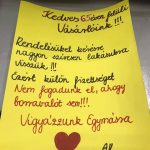 Kedves 65 éven felüli
Vásárlóink!!!
Rendelésüket kérésre
nagyon szívesen lakásukra
visszük!!!
Ezért külön fizetséget
Nem fogadunk el, ahogy
borravalót sem!!!
Vigyázzunk Egymásra